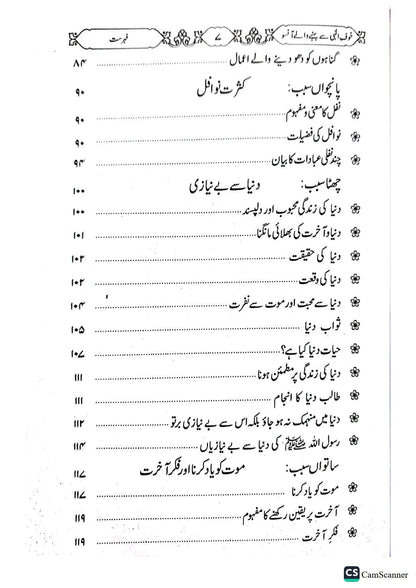 خوف الٰہی سے بہنے والے آنسو ۷ فہرست
گناہوں کو دھو دینے والے اعمال ۸۴
پانچواں سبب: کثرت نوافل ۹۰
نفل کا معنی و مفہوم ۹۰
نوافل کی فضیلت ۹۰
چند نفلی عبادات کا بیان ۹۴
چھٹا سبب: دنیا سے بے نیازی ۱۰۰
دنیا کی زندگی محبوب اور دلپسند ۱۰۰
دنیا و آخرت کی بھلائی مانگنا ۱۰۱
دنیا کی حقیقت ۱۰۲
دنیا کی وقعت ۱۰۲
دنیا سے محبت اور موت سے نفرت ۱۰۴
ثواب دنیا ۱۰۵
حیات دنیا کیا ہے؟ ۱۰۷
دنیا کی زندگی پر مطمئن ہونا ۱۱۱
طالب دنیا کا انجام ۱۱۱
دنیا میں منہمک نہ ہو جاؤ بلکہ اس سے بے نیازی برتو ۱۱۲
رسول اللہ ﷺ کی دنیا سے بے نیازیاں ۱۱۴
ساتواں سبب: موت کو یاد کرنا اور فکر آخرت ۱۱۷
موت کو یاد کرنا ۱۱۷
آخرت پر یقین رکھنے کا مفہوم ۱۱۹
فکر آخرت ۱۱۹
CS CamScanner